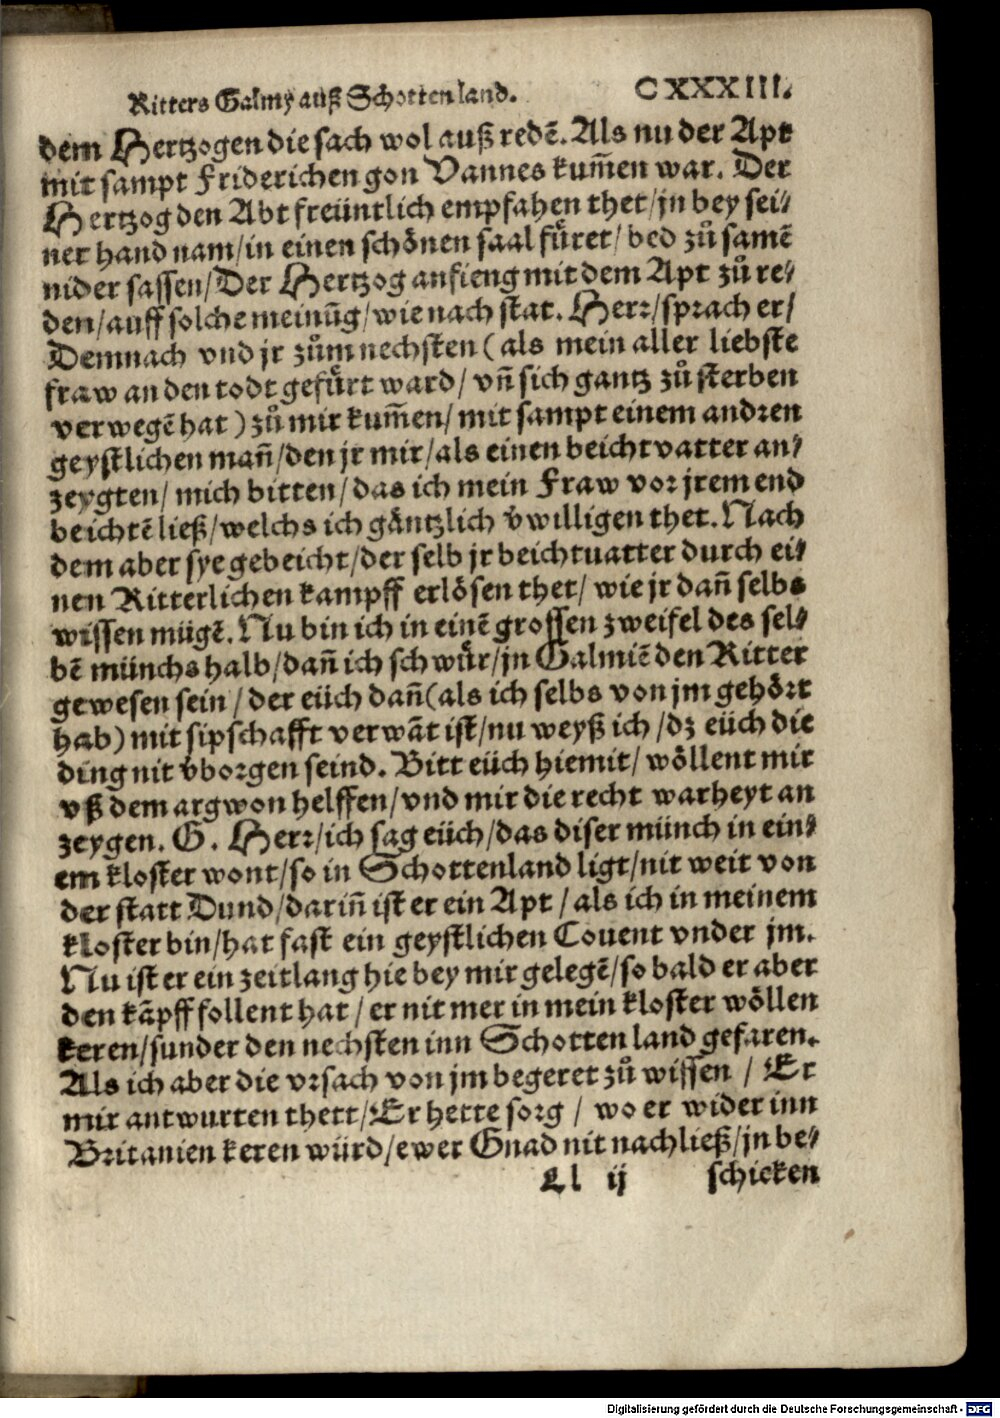 Ritters Galmy auß Schottenland. CXXXIII.
dem Hertzogen die sach wol auß redẽ. Als nu der Apt
mit sampt Friderichen gon Vannes kum̃en war. Der
Hertzog den Abt freüntlich empfahen thet/jn bey sei⸗
ner hand nam/in einen schönen saal fůret/ bed zů samẽ
nider sassen/Der Hertzog anfieng mit dem Apt zů re⸗
den/auff solche meinũg/wie nach stat. Herr/sprach er/
Demnach vnd jr zům nechsten (als mein aller liebste
fraw an den todt gefůrt ward/ vñ sich gantz zů sterben
verwegẽ hat) zů mir kum̃en/ mit sampt einem andren
geystlichen mañ/den jr mir/als einen beichtvatter an⸗
zeygten/ mich bitten/das ich mein Fraw vor jrem end
beichtẽ ließ/welchs ich gäntzlich v̆willigen thet. Nach
dem aber sye gebeicht/der selb jr beichtuatter durch ei⸗
nen Ritterlichen kampff erlösen thet/ wie jr dañ selbs
wissen mügẽ. Nu bin ich in einẽ grossen zweifel des sel⸗
bẽ münchs halb/dañ ich schwůr/jn Galmiẽ den Ritter
gewesen sein/der eüch dañ(als ich selbs von jm gehört
hab) mit sipschafft verwãt ist/nu weyß ich/dz eüch die
ding nit v̆borgen seind. Bitt eüch hiemit/ wöllent mir
vß dem argwon helffen/vnd mir die recht warheyt an
zeygen. G. Herr/ich sag eüch/das diser münch in ein⸗
em kloster wont/so in Schottenland ligt/nit weit von
der statt Dund/dariñ ist er ein Apt/als ich in meinem
kloster bin/hat fast ein geystlichen Couent vnder jm.
Nu ist er ein zeitlang hie bey mir gelegẽ/so bald er aber
den kãpff follent hat/er nit mer in mein kloster wöllen
keren/sunder den nechsten inn Schotten land gefaren.
Als ich aber die vrsach von jm begeret zů wissen / Er
mir antwurten thett/Er hette sorg / wo er wider inn
Britanien keren würd/ewer Gnad nit nachließ/jn be⸗
Ll ij schicken
Digitalisierung gefördert durch die Deutsche Forschungsgemeinschaft - DFG